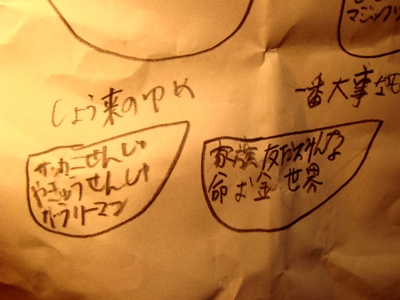 マジック
しょう来のゆめ
一番大事なも
サッカーせんしゅ
やきゅうせんしゅ
サラリーマン
家族 友だち みんな
命 お金 世界